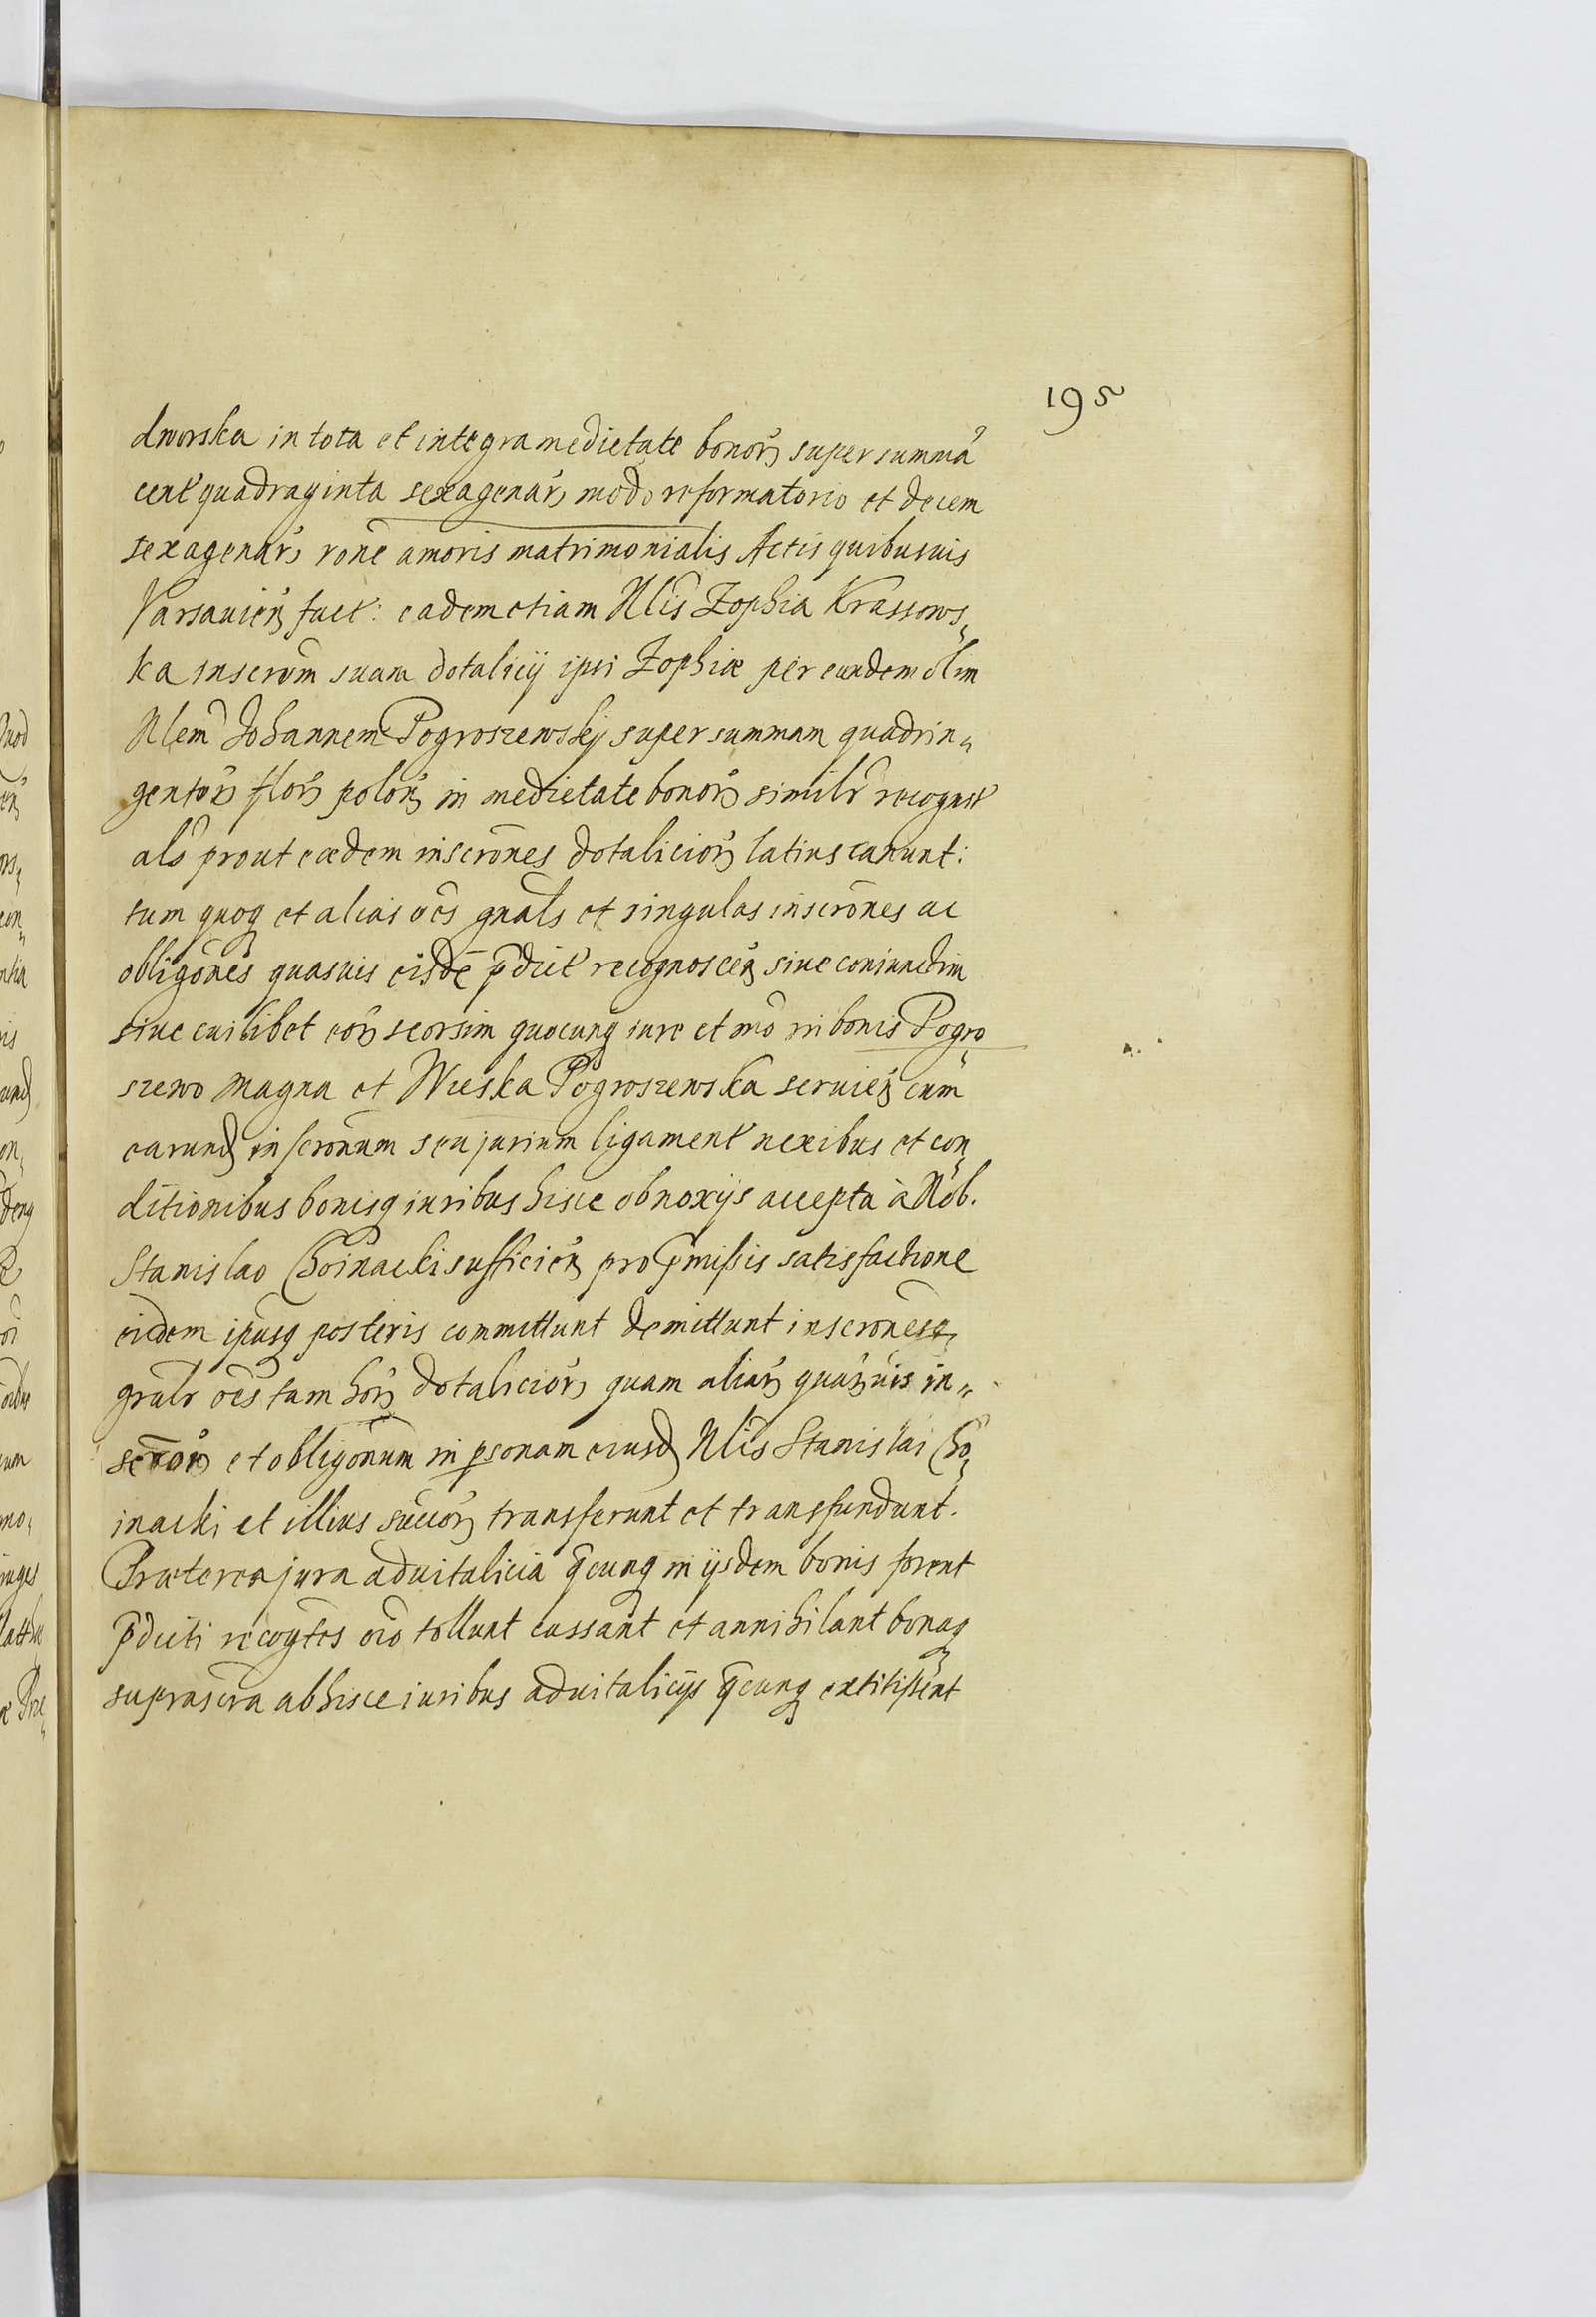 195
dworska in tota et integra medietate bonor̃ super summã
cent̃ quadraginta sexagenar̃ modo reformatorio et decem
sexagenar̃ rone amoris matrimonialis Actis quibusuis
Varsauien̄ fact: eadem etiam Nlis Zophia Krassows„
ka inscrōm suam dotalicij ipsi Zophiæ per eundem olim
Nlem Johannem Pogroszewskij super summam quadrin„
gentor̃ flor̃ polon̄ in medietate bonor̃ simil̃r recognit̃
als̄ prout eædem inscrōnes dotalicior̃ latius canunt:
tum quoq et alias oēs gn̄als et singulas inscrōnes ac
obligōnes quasuis eisdē p̄dict̃ recognoscen̄ siue coniunctim
siue cuilibet eor̃ seorsim quocunq iure et mō in bonis Pogro„
szewo magna et Wieska Pogroszewska seruien̄ cum
earund̄ inscrōnum seu jurium ligament̃ nexibus et con„
ditionibus bonisq iuribus hisce obnoxijs accepta à Nob.
Stanislao Choinacki sufficien̄ pro p̄missis satisfactione
eidem ip̄usq posteris committunt demittunt inscrōnesq
gn̄alr oēs tam hor̃ dotalicior̃ quam aliar̃ quar̃uis in„
scrōn̄ et obligōnum in p̱sonam eiusd̄ Nlis Stanislai Cho„
inacki et illius succor̃ transferunt et transfundunt.
Præterea jura aduitalicia q̄cunq in ijsdem bonis forent
p̄dicti recogn̄tes oīo tollunt cassant et annihilant bonaq
suprascrā ab hisce iuribus aduitalicijs q̄cunq extitissent